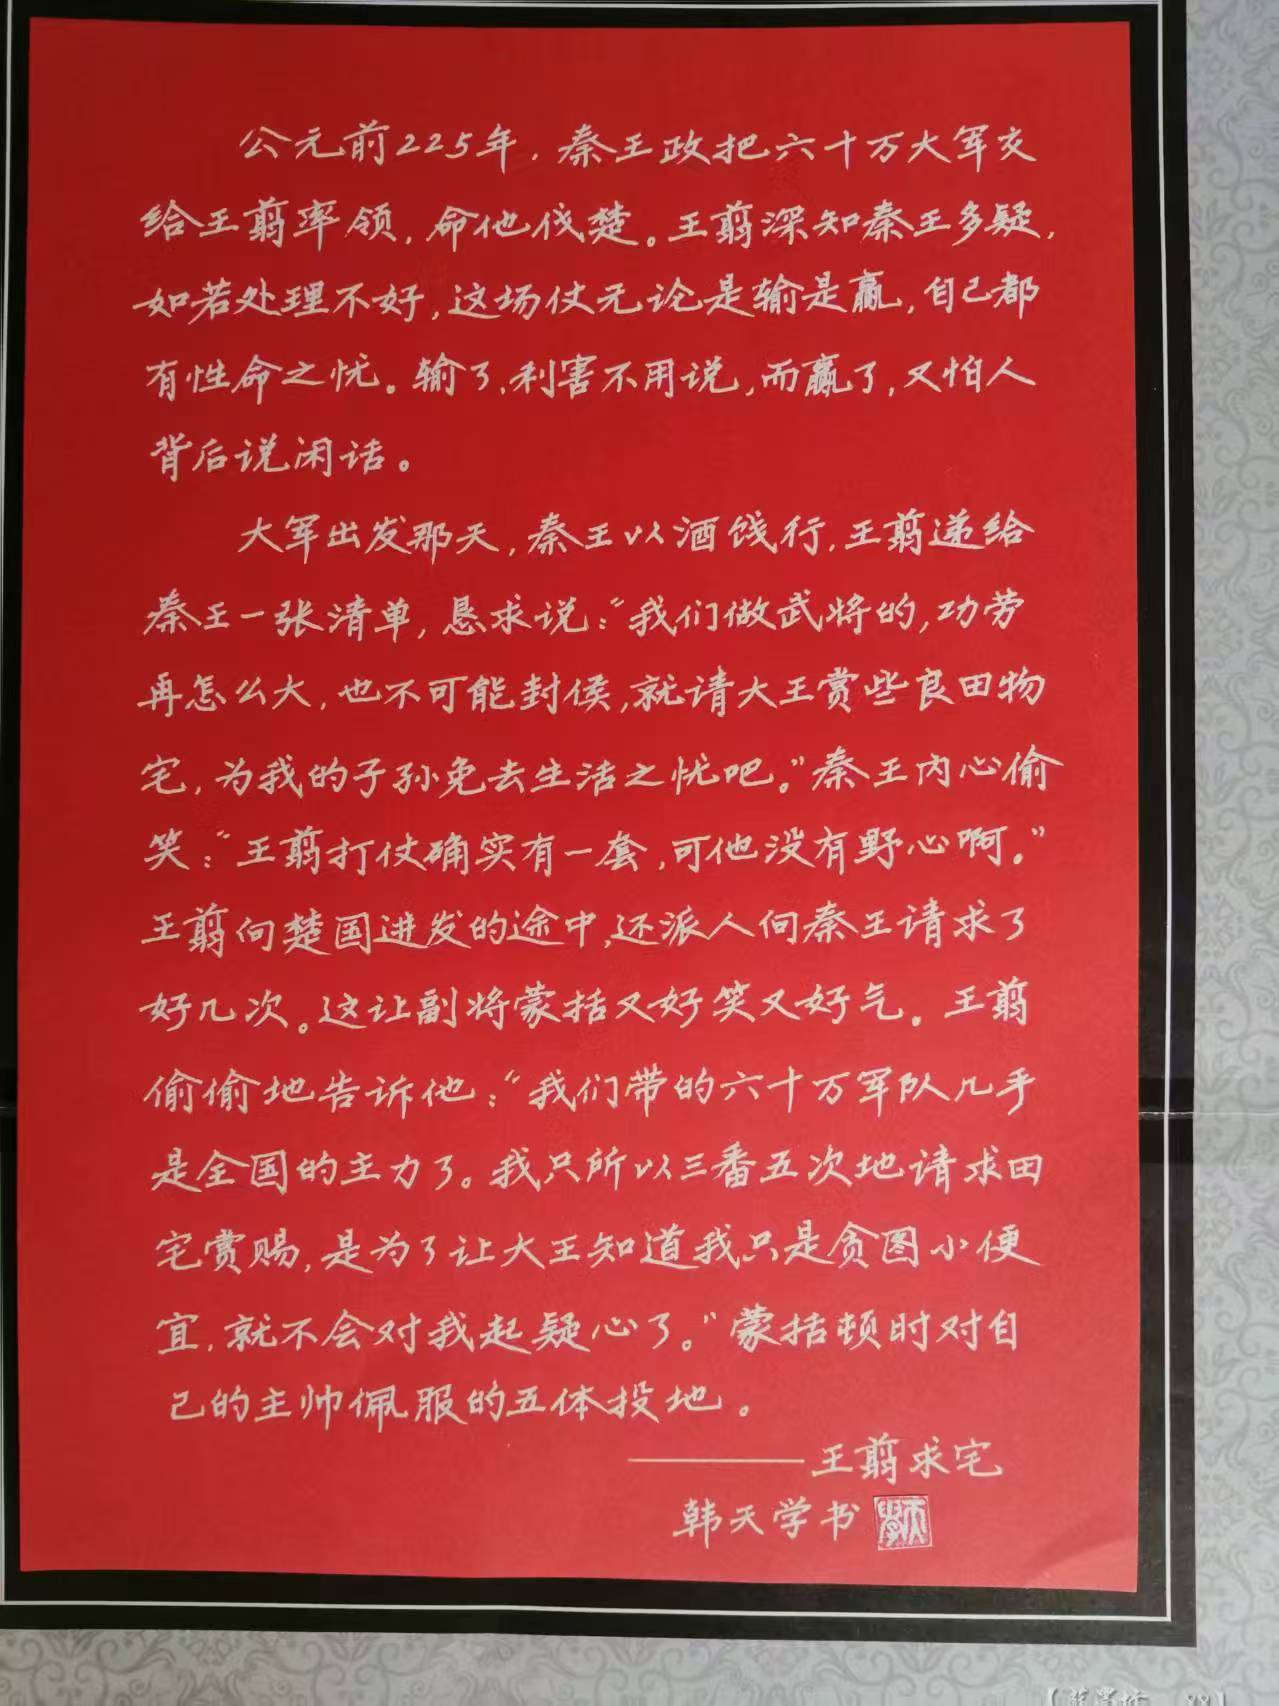 公元前225年，秦王政把六十万大军交
给王翦率领，命他伐楚。王翦深知秦王多疑，
如若处理不好，这场仗无论是输是赢，自己都
有性命之忧。输了，利害不用说，而赢了，又怕人
背后说闲话。
大军出发那天，秦王以酒饯行，王翦递给
秦王一张清单，恳求说：“我们做武将的，功劳
再怎么大，也不可能封侯，就请大王赏些良田物
宅，为我的子孙免去生活之忧吧。”秦王内心偷
笑：“王翦打仗确实有一套，可他没有野心啊。”
王翦向楚国进发的途中，还派人向秦王请求了
好几次。这让副将蒙括又好笑又好气。王翦
偷偷地告诉他：“我们带的六十万军队几乎
是全国的主力了。我只所以三番五次地请求田
宅赏赐，是为了让大王知道我只是贪图小便
宜，就不会对我起疑心了。”蒙括顿时对自
己的主帅佩服的五体投地。
——王翦求宅
韩天学书